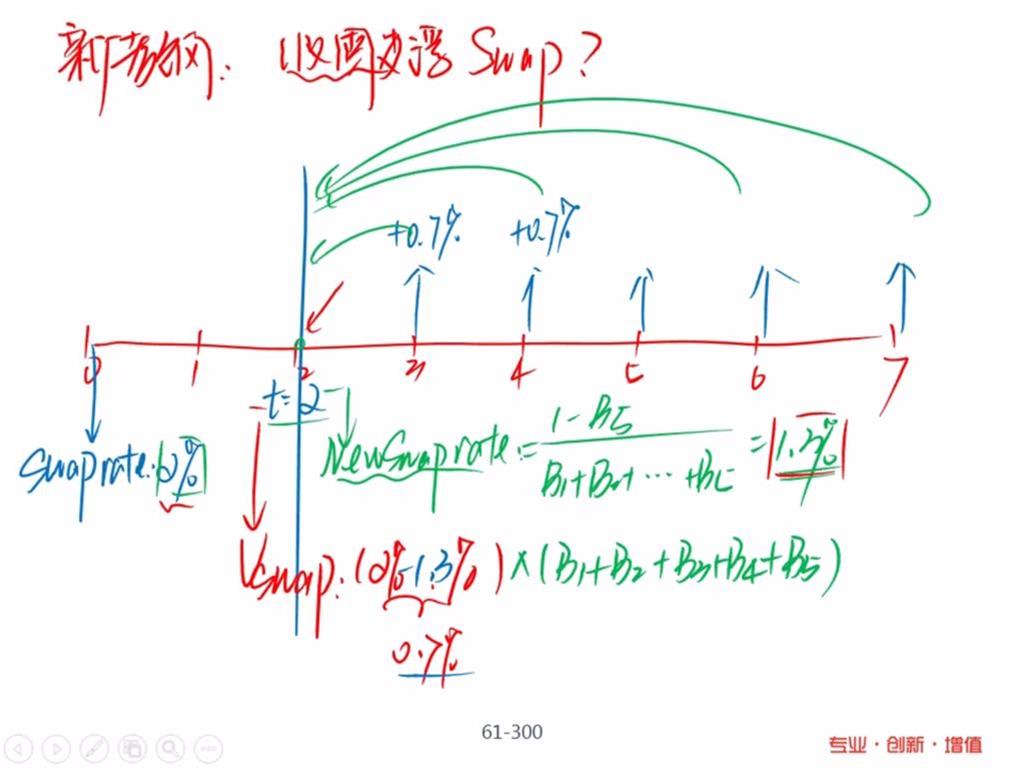 新考纲: 收固支浮 Swap?
+0.7% +0.7%
0 1 2 3 4 5 6 7
t=2
Swap rate: 2% New Swap rate = 1-B5 / B1+B2+...+B5 = 1.3%
Vswap: (2%-1.3%) × (B1+B2+B3+B4+B5)
0.7%
61-300
专业·创新·增值